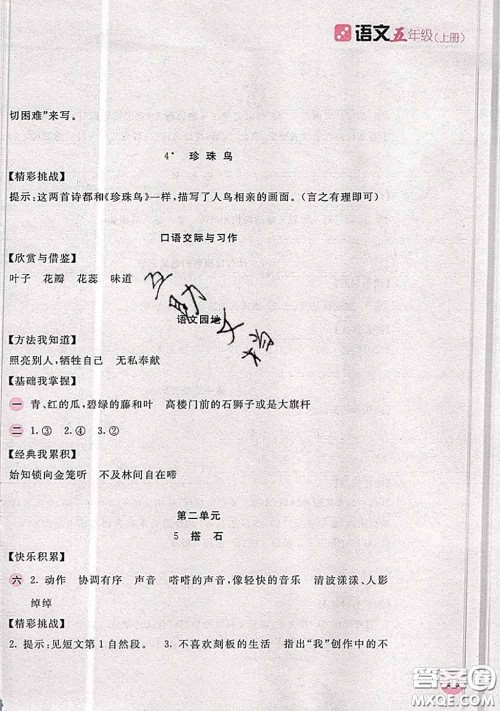 语文五年级(上册)
切困难”来写。
4* 珍珠鸟
【精彩挑战】
提示:这两首诗都和《珍珠鸟》一样,描写了人鸟相亲的画面。(言之有理即可)
口语交际与习作
【欣赏与借鉴】
叶子 花瓣 花蕊 味道
语文园地
【方法我知道】
照亮别人,牺牲自己 无私奉献
【基础我掌握】
一 青、红的瓜,碧绿的藤和叶 高楼门前的石狮子或是大旗杆
二 1.③ 2.④ 3.②
【经典我累积】
始知锁向金笼听 不及林间自在啼
第二单元
5 搭石
【快乐积累】
六 2. 动作 协调有序 声音 嗒嗒的声音,像轻快的音乐 清波漾漾、人影
绰绰
【精彩挑战】
2. 提示:见短文第1自然段。 3. 不喜欢刻板的生活 指出“我”创作中的不
互助文档
答案圈
MXQE.COM